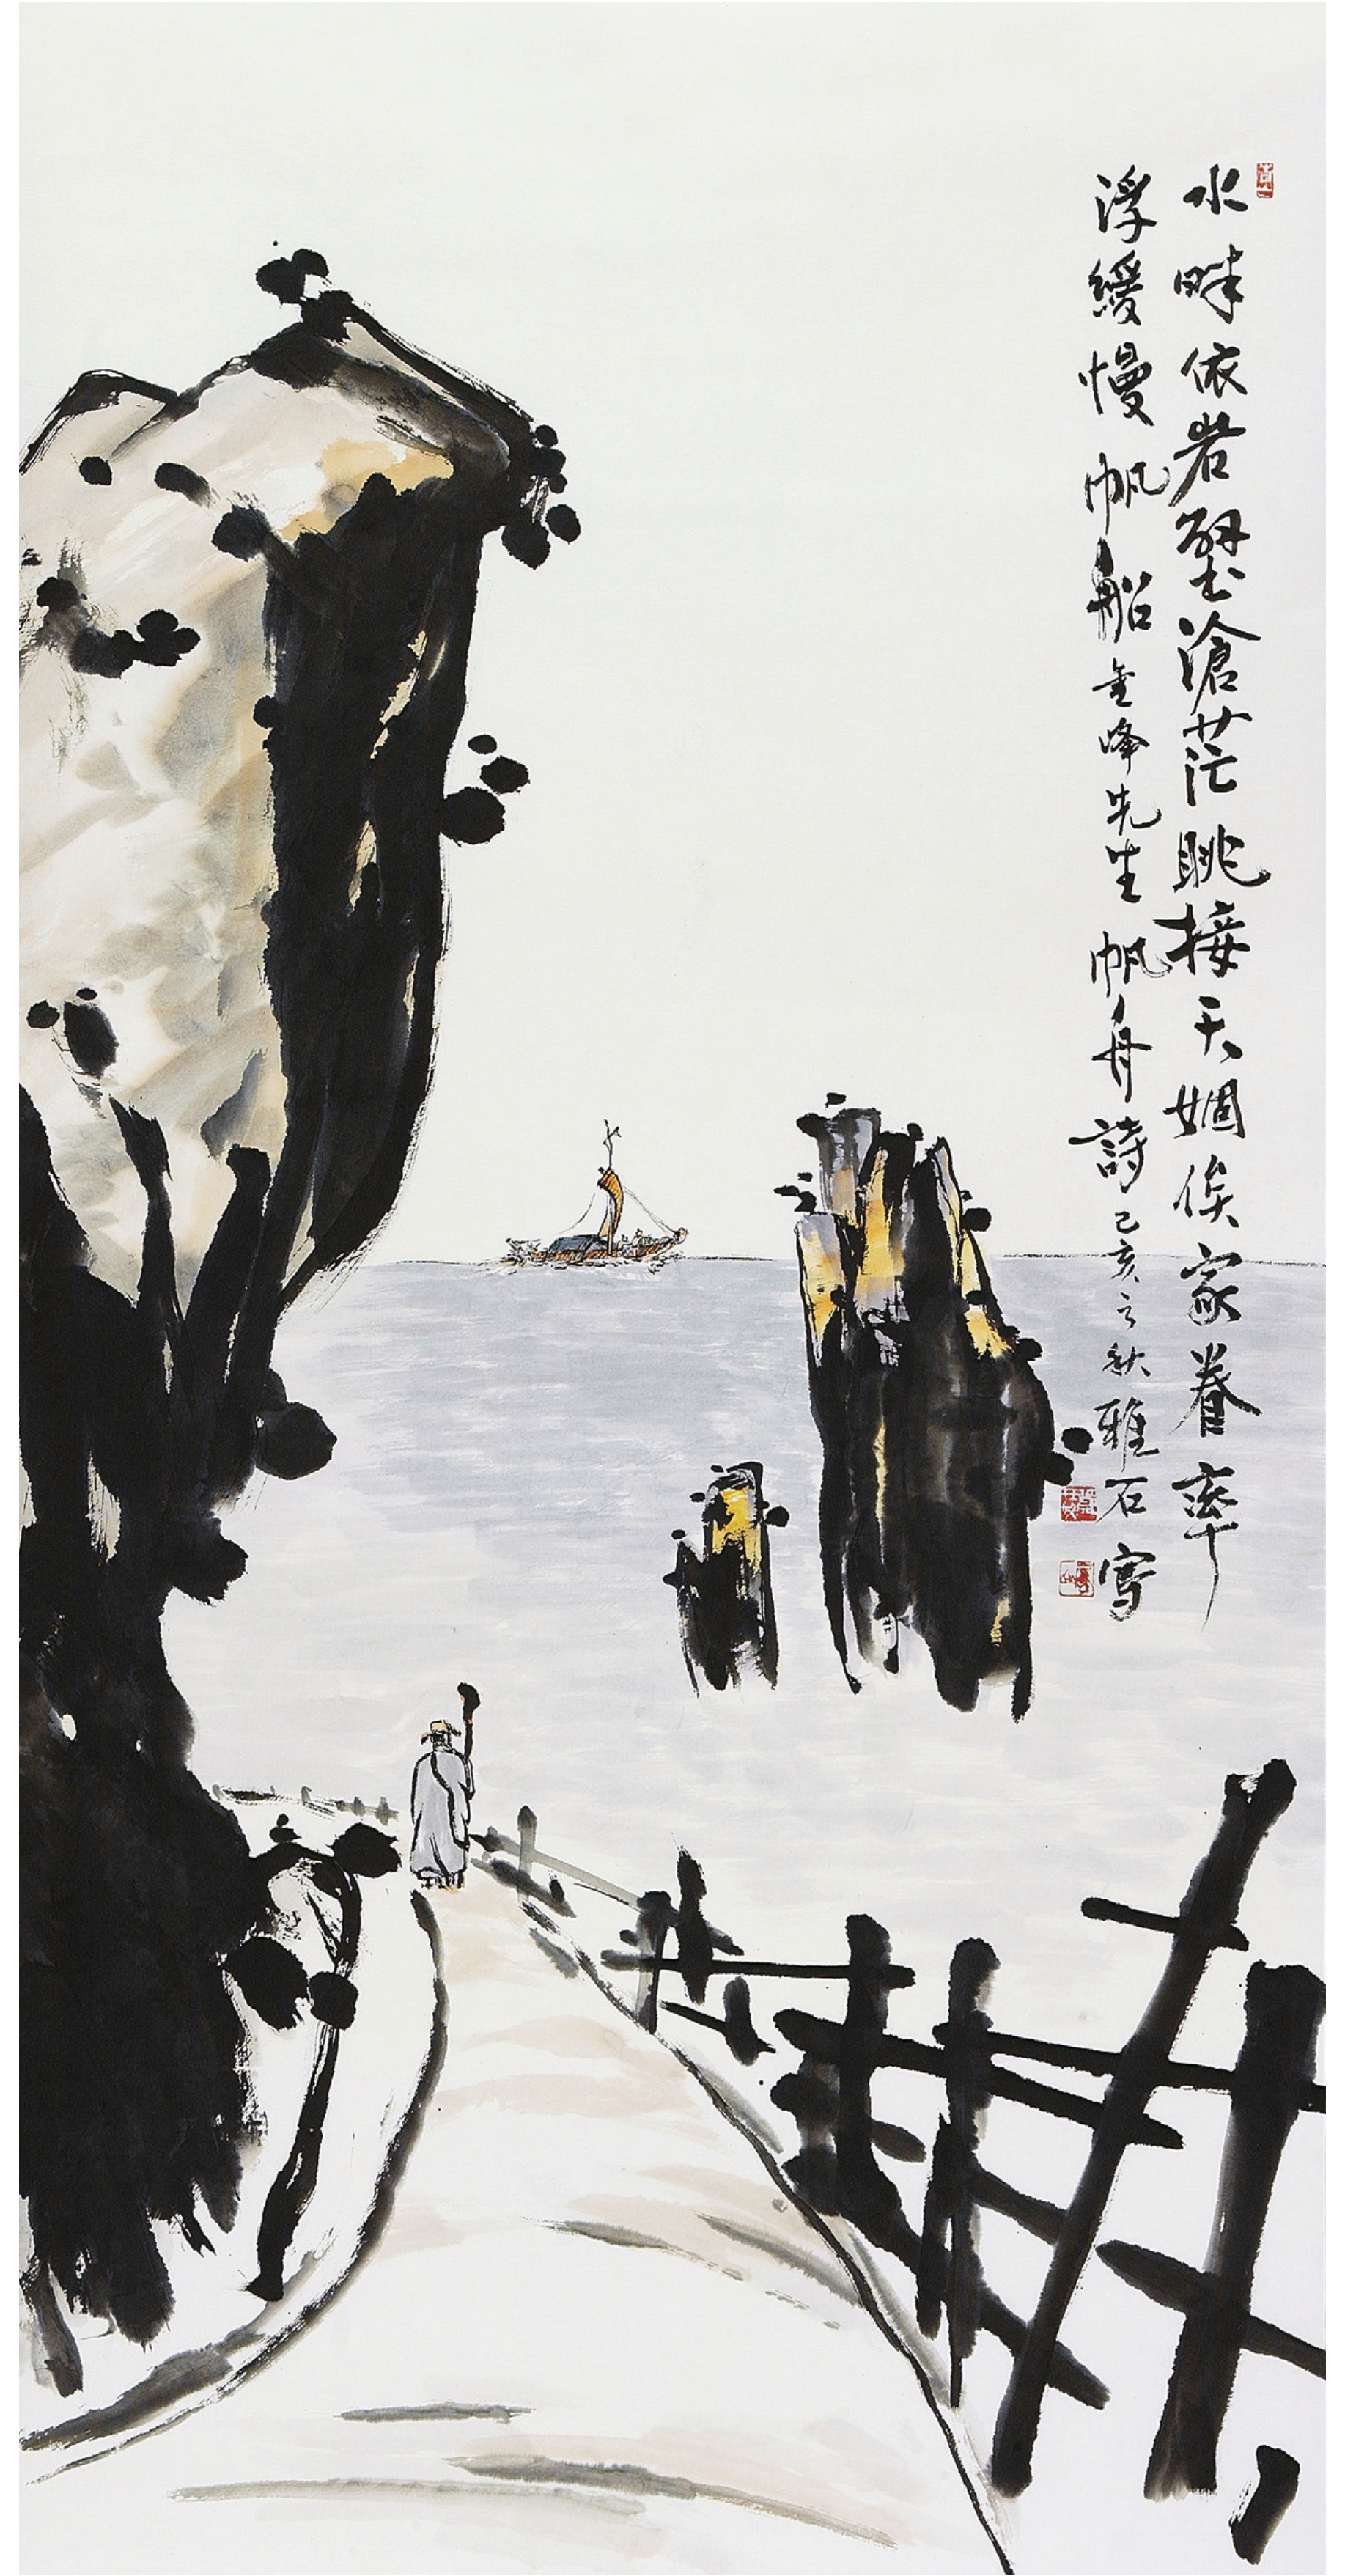 水畔依岩壁滄茫眺接天婟俟家眷率
浮緩慢帆船金峰先生帆舟詩己亥之秋雅石寫